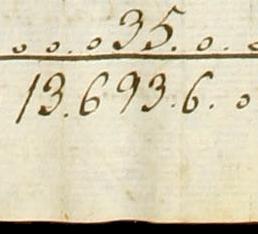 o o . o 35 . o . o
13.693.6. o